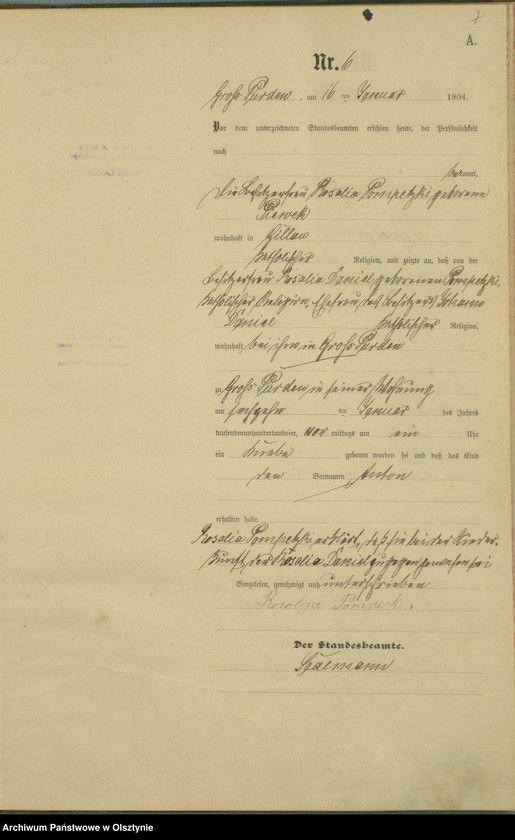 7
A.
Nr. 6
Groß Purden, am 16 ten Januar 1904.
Vor dem unterzeichneten Standesbeamten erschien heute, der Persönlichkeit
nach
bekannt,
die Besitzerfrau Rosalia Pompetzki geborene
wohnhaft in Gillau
katholischer Religion, und zeigte an, daß von der
Besitzerfrau Rosalia Daniel geborenen Pompetzki,
katholischer Religion, Ehefrau des Besitzers Johann
Daniel katholischer Religion,
wohnhaft bei ihm in Groß Purden
zu Groß Purden in seiner Wohnung
am sechzehn ten Januar des Jahres
tausendneunhundertundvier, vor mittags um ein Uhr
ein Knabe geboren worden sei und daß das Kind
den Vornamen Anton
erhalten habe.
Rosalia Pompetzki erklärt, daß sie bei der Nieder-
kunft der Rosalia Daniel zugegen gewesen sei
Vorgelesen, genehmigt und unterschrieben
Der Standesbeamte.
Archiwum Państwowe w Olsztynie